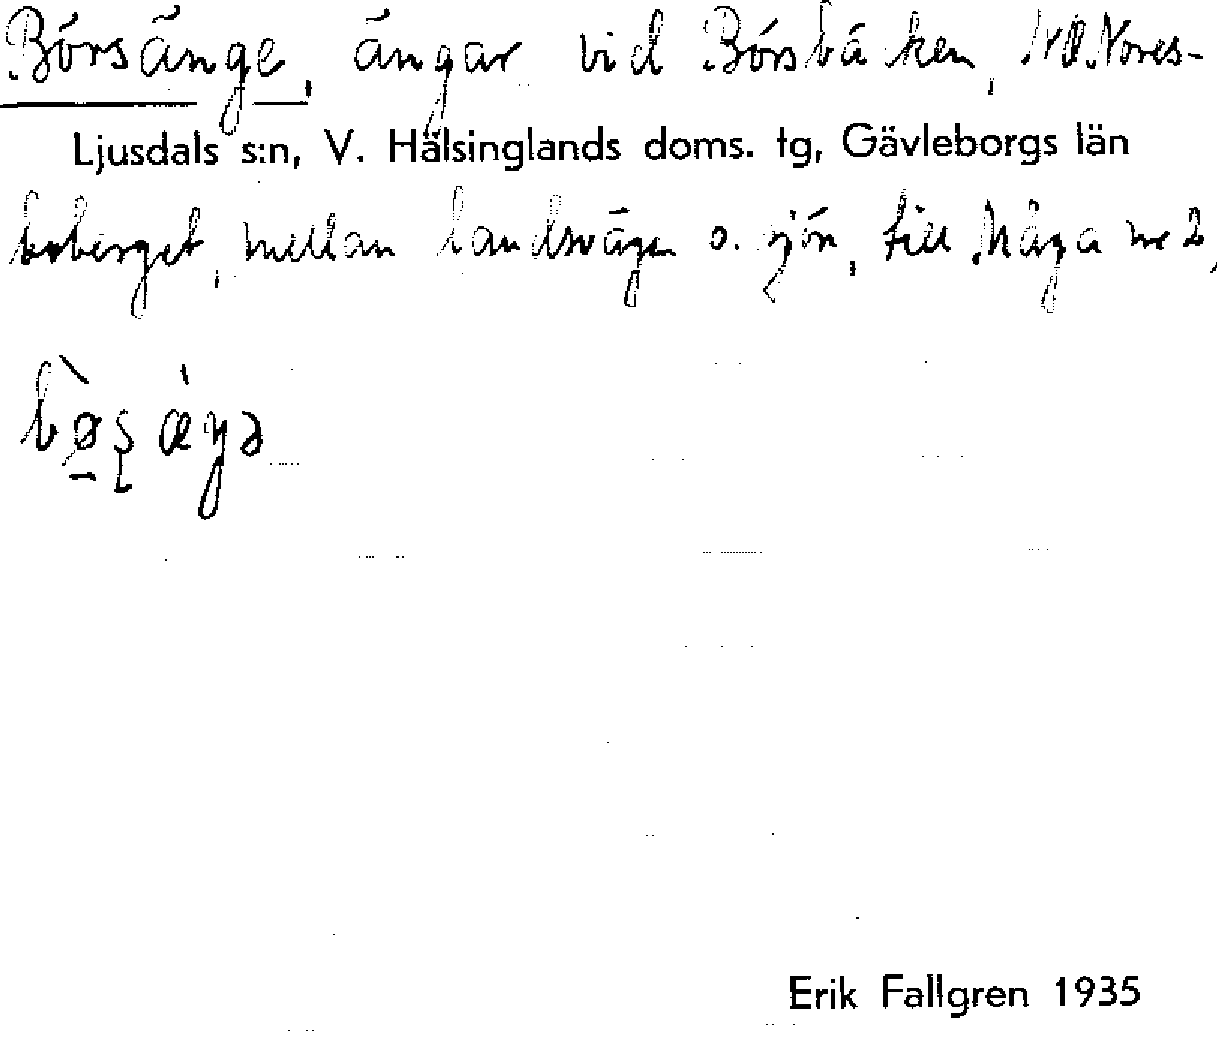 Börsänge, ängar vid Börsbäcken, NO. Nores-
Ljusdals s:n, V. Hälsinglands doms. tg, Gävleborgs län
boberget, mellan landsvägen o. sjön, till Måga nr 2,
Erik Fallgren 1935